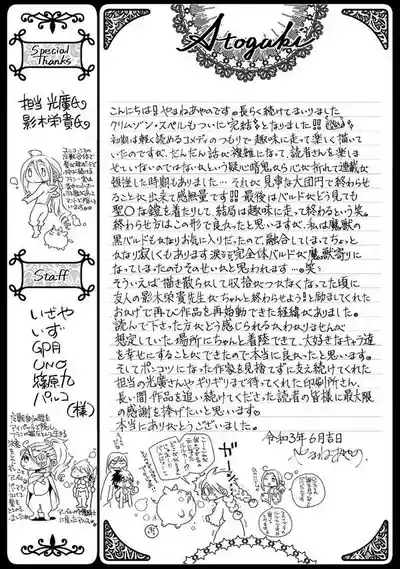 Atogaki
Special
Thanks
担当 光廣さん
影木栄貴さん
Staff
いさや
いず
GP月
UNO
篠原九
パルコ
(様)
こんにちは!やまねあやのです。長らく続けてまいりました
クリムゾン・スペルもついに完結となりました!!
初期は軽く読めるコメディのつもりで趣味に走って楽しく描いて
いたのですが、だんだん話が複雑になって、読者さんを楽しま
せていないのではないかという疑心暗鬼から心が折れて連載が
頓挫した時期もありました…それが見事な大団円で終わらせ
ることが出来て感無量です!!最後はバルドがどう見ても
聖○な鎧を着たりして結局は趣味に走って終わるという笑。
終わらせ方はこの形で良かったと思いますが、私は魔獣の
黒バルドもかなりお気に入りだったので、融合してしまってちょっと
かなり寂しくもあります 涙 完全体バルドが魔獣寄りに
なってしまったのもそのせいかと思われます…。笑
そういえば描き散らして収拾がつかなくなってた頃に
友人の影木栄貴先生がちゃんと終わらせよう!と励ましてくれた
おかげで再び作品を再始動できた経緯がありました。
読んで下さった方がどう感じられるかわかりませんが
想定していた場所にちゃんと着陸できて、大好きなキャラ達
を幸せにすることができたので本当に良かったと思います。
そしてポンコツになった作家を見捨てずに支え続けてくれた
担当の光廣さんやギリギリまで待ってくれた印刷所さん、
長い間作品を追い続けてくださった読者の皆様に最大限
の感謝を捧げたいと思います。
本当にありがとうございました。
令和3年6月吉日
やまねあやの